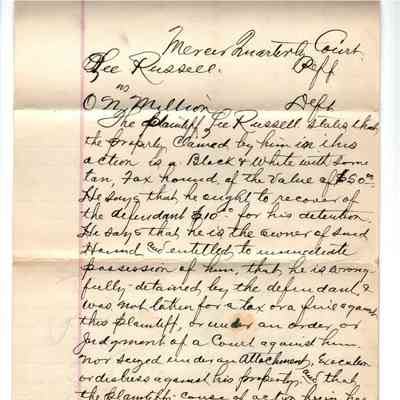 Mercer Quarterly Court.
Lee Russell. Peff
vs
O N Million Deft
The plaintiff Lee Russell states that
the property claimed by him in this
action is a Black & White with some
tan, Fax hound of the value of $50.00
He says that he ought to recover of
the defendant $10.00 for his detention
He says that he is the owner of said
Hound & entitled to immediate
possession of him, that he is wrong-
fully detained by the defendant, &
was not taken for a tax or a fine against
this plaintiff, or under an order, or
Judgment of a Court against him.
nor seized under an Attachment, Execution
or distress against his property, and that
the plaintiffs cause of action herein has